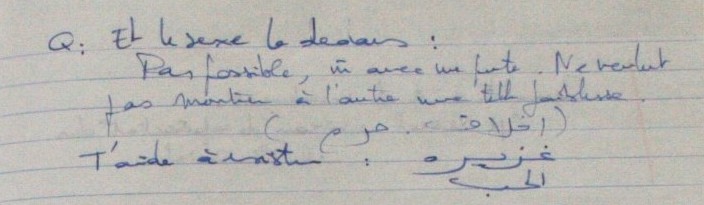 Q: Et le sexe là dedans :
Pas possible, ni avec une pute. Ne veulent
pas montrer à l'autre une telle faiblesse.
(اخلاق . حرم)
T'aide à exister : غزيره
الحب